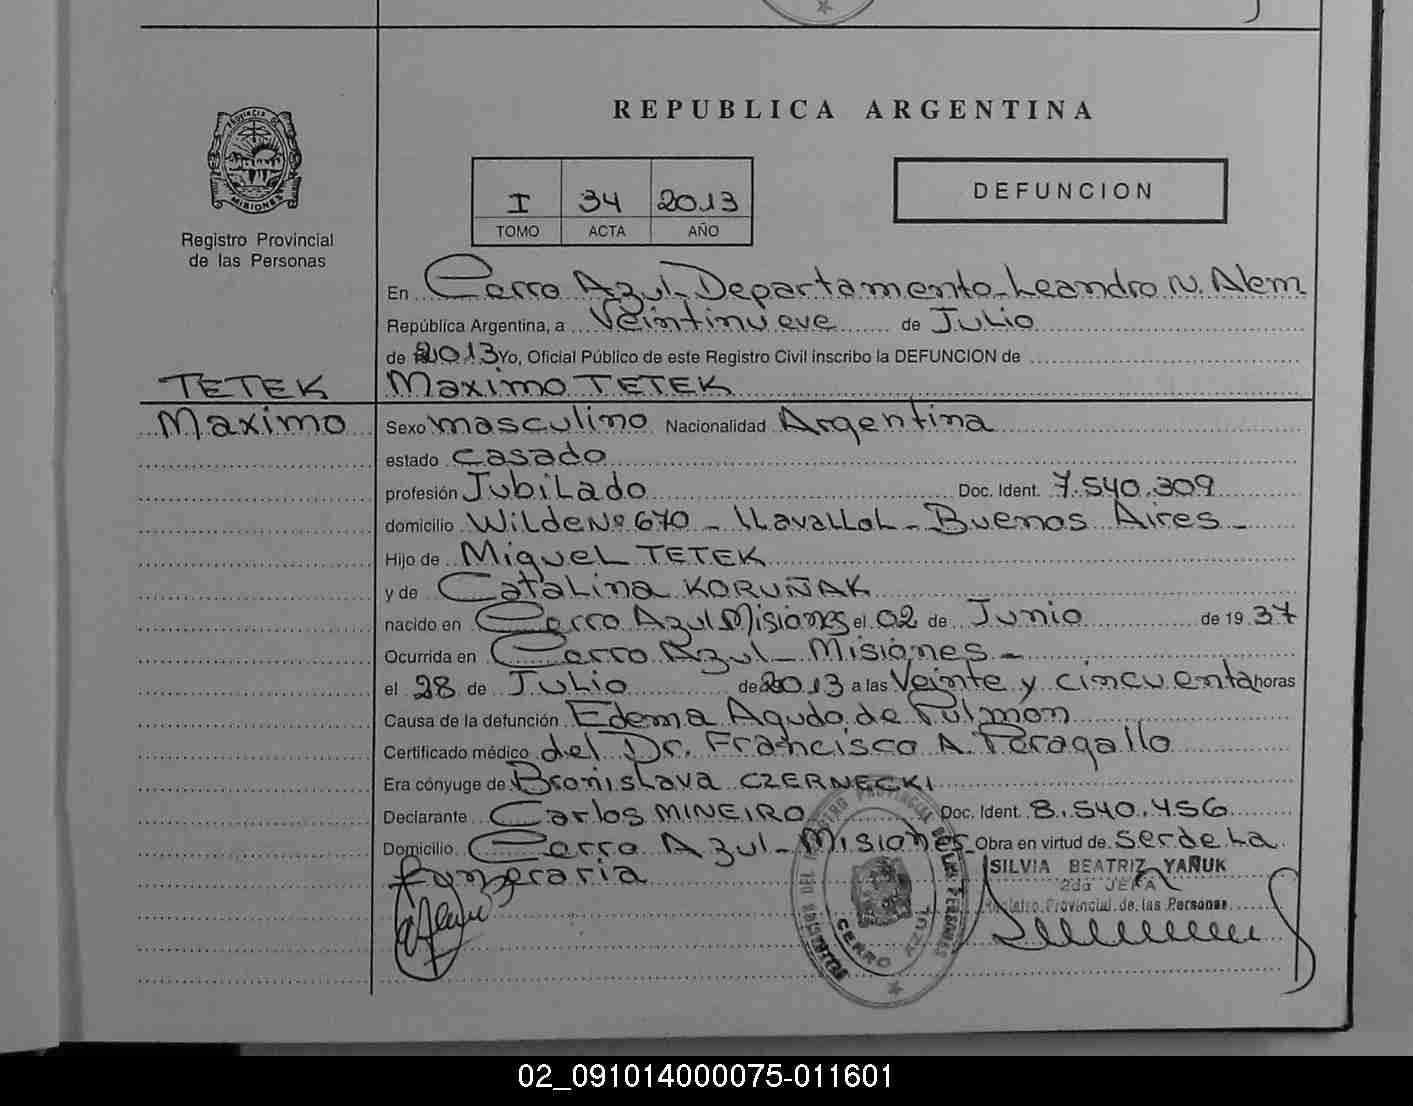 REPUBLICA ARGENTINA
PROVINCIA DE
MISIONES
Registro Provincial
de las Personas
I 34 2013
TOMO ACTA AÑO
DEFUNCION
En Cerro Azul-Departamento-Leandro N. Alem
República Argentina, a Veintinueve de Julio
de 2013 Yo, Oficial Público de este Registro Civil inscribo la DEFUNCION de
TETEK Maximo TETEK
Maximo Sexo masculino Nacionalidad Argentina
estado Casado
profesión Jubilado Doc. Ident. 7.540.309
domicilio Wilde Nº 670 - LLavallol - Buenos Aires -
Hijo de Miguel TETEK
y de Catalina KORUÑAK
nacido en Cerro Azul Misiones el 02 de Junio de 1937
Ocurrida en Cerro Azul - Misiones -
el 28 de Julio de 2013 a las Veinte y cincuenta horas
Causa de la defunción Edema Agudo de Pulmón
Certificado médico del Dr. Francisco A. Peragallo
Era cónyuge de Bronislava CZERNECKI
Declarante Carlos MINEIRO Doc. Ident. 8.540.456
Domicilio Cerro Azul - Misiones - Obra en virtud de ser de La
funeraria
SILVIA BEATRIZ YAÑUK
2da JEFA
Registro Provincial de las Personas
REGISTRO PROVINCIAL DE LAS PERSONAS
CERRO AZUL
02_091014000075-011601